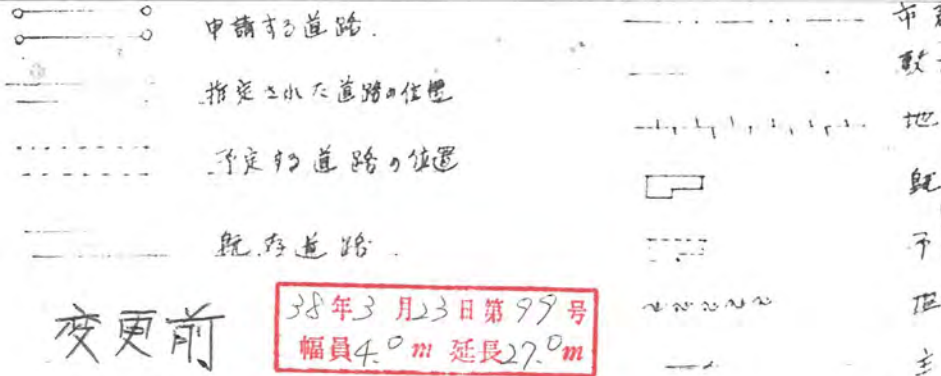 申請する道路.
指定された道路の位置
予定する道路の位置
既存道路.
変更前
38年3月23日第99号
幅員4.0m 延長27.0m
市
敷
地
既
予